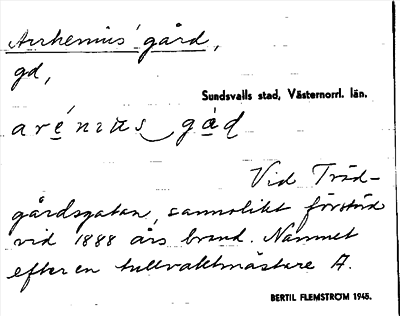 Arrhenius' gård,
gd,
Sundsvalls stad, Västernorrl. län.
arénius gåd
Vid Träd-
gårdsgatan, sannolikt förstörd
vid 1888 års brand. Namnet
efter en tullvaktmästare A.
BERTIL FLEMSTRÖM 1945.